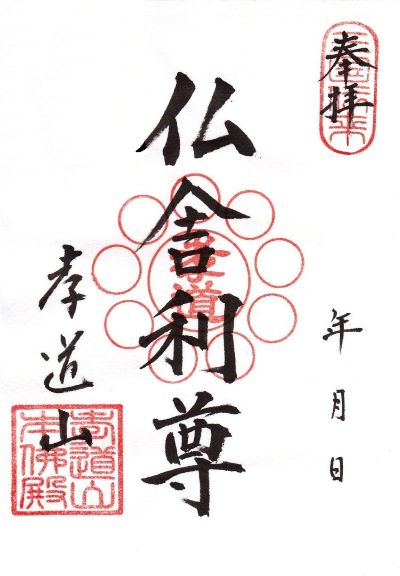 奉拝
年月日
仏舎利尊
孝道
孝道山
孝道山
本佛殿